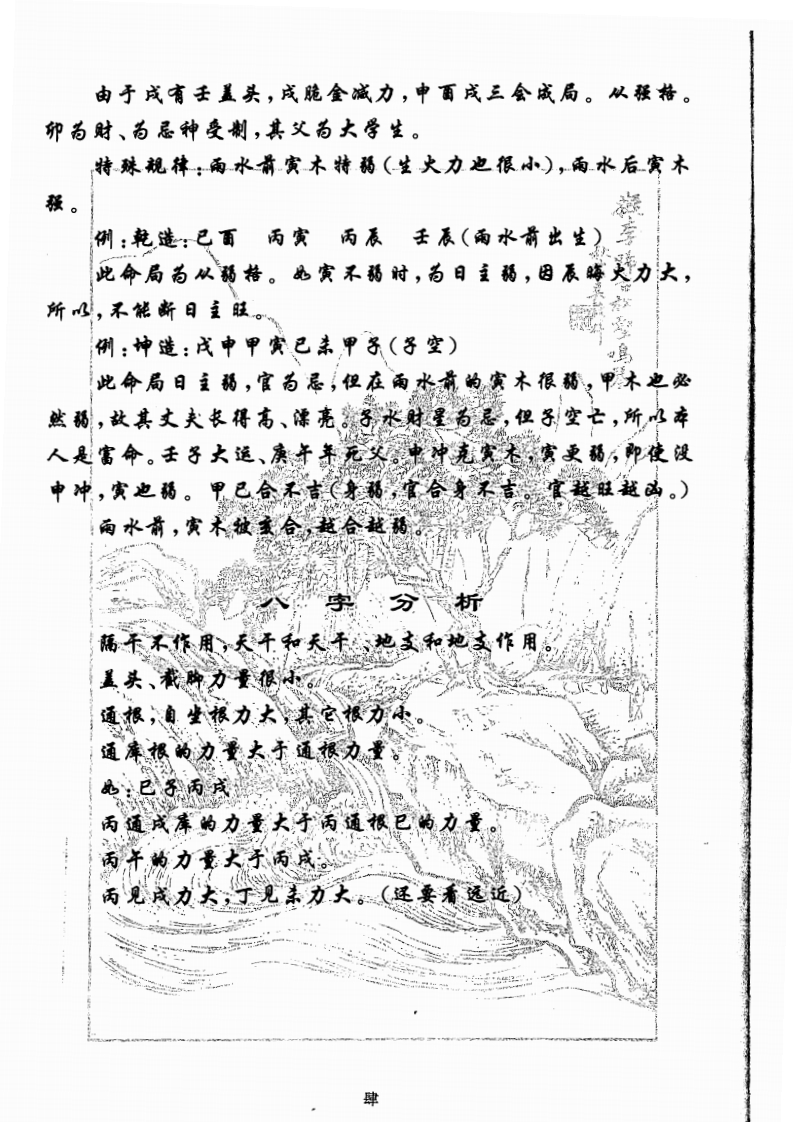 由于戌有壬盖头，戌脆金减力，申酉戌三会成局。从强格。
卯为财、为忌神受制，其父为大学生。
特殊规律：雨水前寅木特弱（生火力也很小），雨水后寅木
强。
例：乾造：己酉　丙寅　丙辰　壬辰（雨水前出生）
此命局为从弱格。如寅不弱时，为日主弱，因辰晦火力大，
所以，不能断日主旺。
例：坤造：戊申甲寅己未甲子（子空）
此命局日主弱，官为忌，但在雨水前的寅木很弱，甲木也必
然弱，故其丈夫长得高、漂亮。子水财星为忌，但子空亡，所以本
人是富命。壬子大运、庚午年死父。申冲克寅木，寅更弱，即使没
申冲，寅也弱。甲己合不吉（身弱，官合身不吉。官越旺越凶。）
雨水前，寅木被亥合，越合越弱。
八字分析
隔干不作用，天干和天干、地支和地支作用。
盖头、截脚力量很小。
通根，自坐根力大，其它根力小。
通库根的力量大于通根力量。
如：巳子丙戌
丙通戌库的力量大于丙通根巳的力量。
丙午的力量大于丙戌。
丙见戌力大，丁见未力大。（还要看远近）
肆